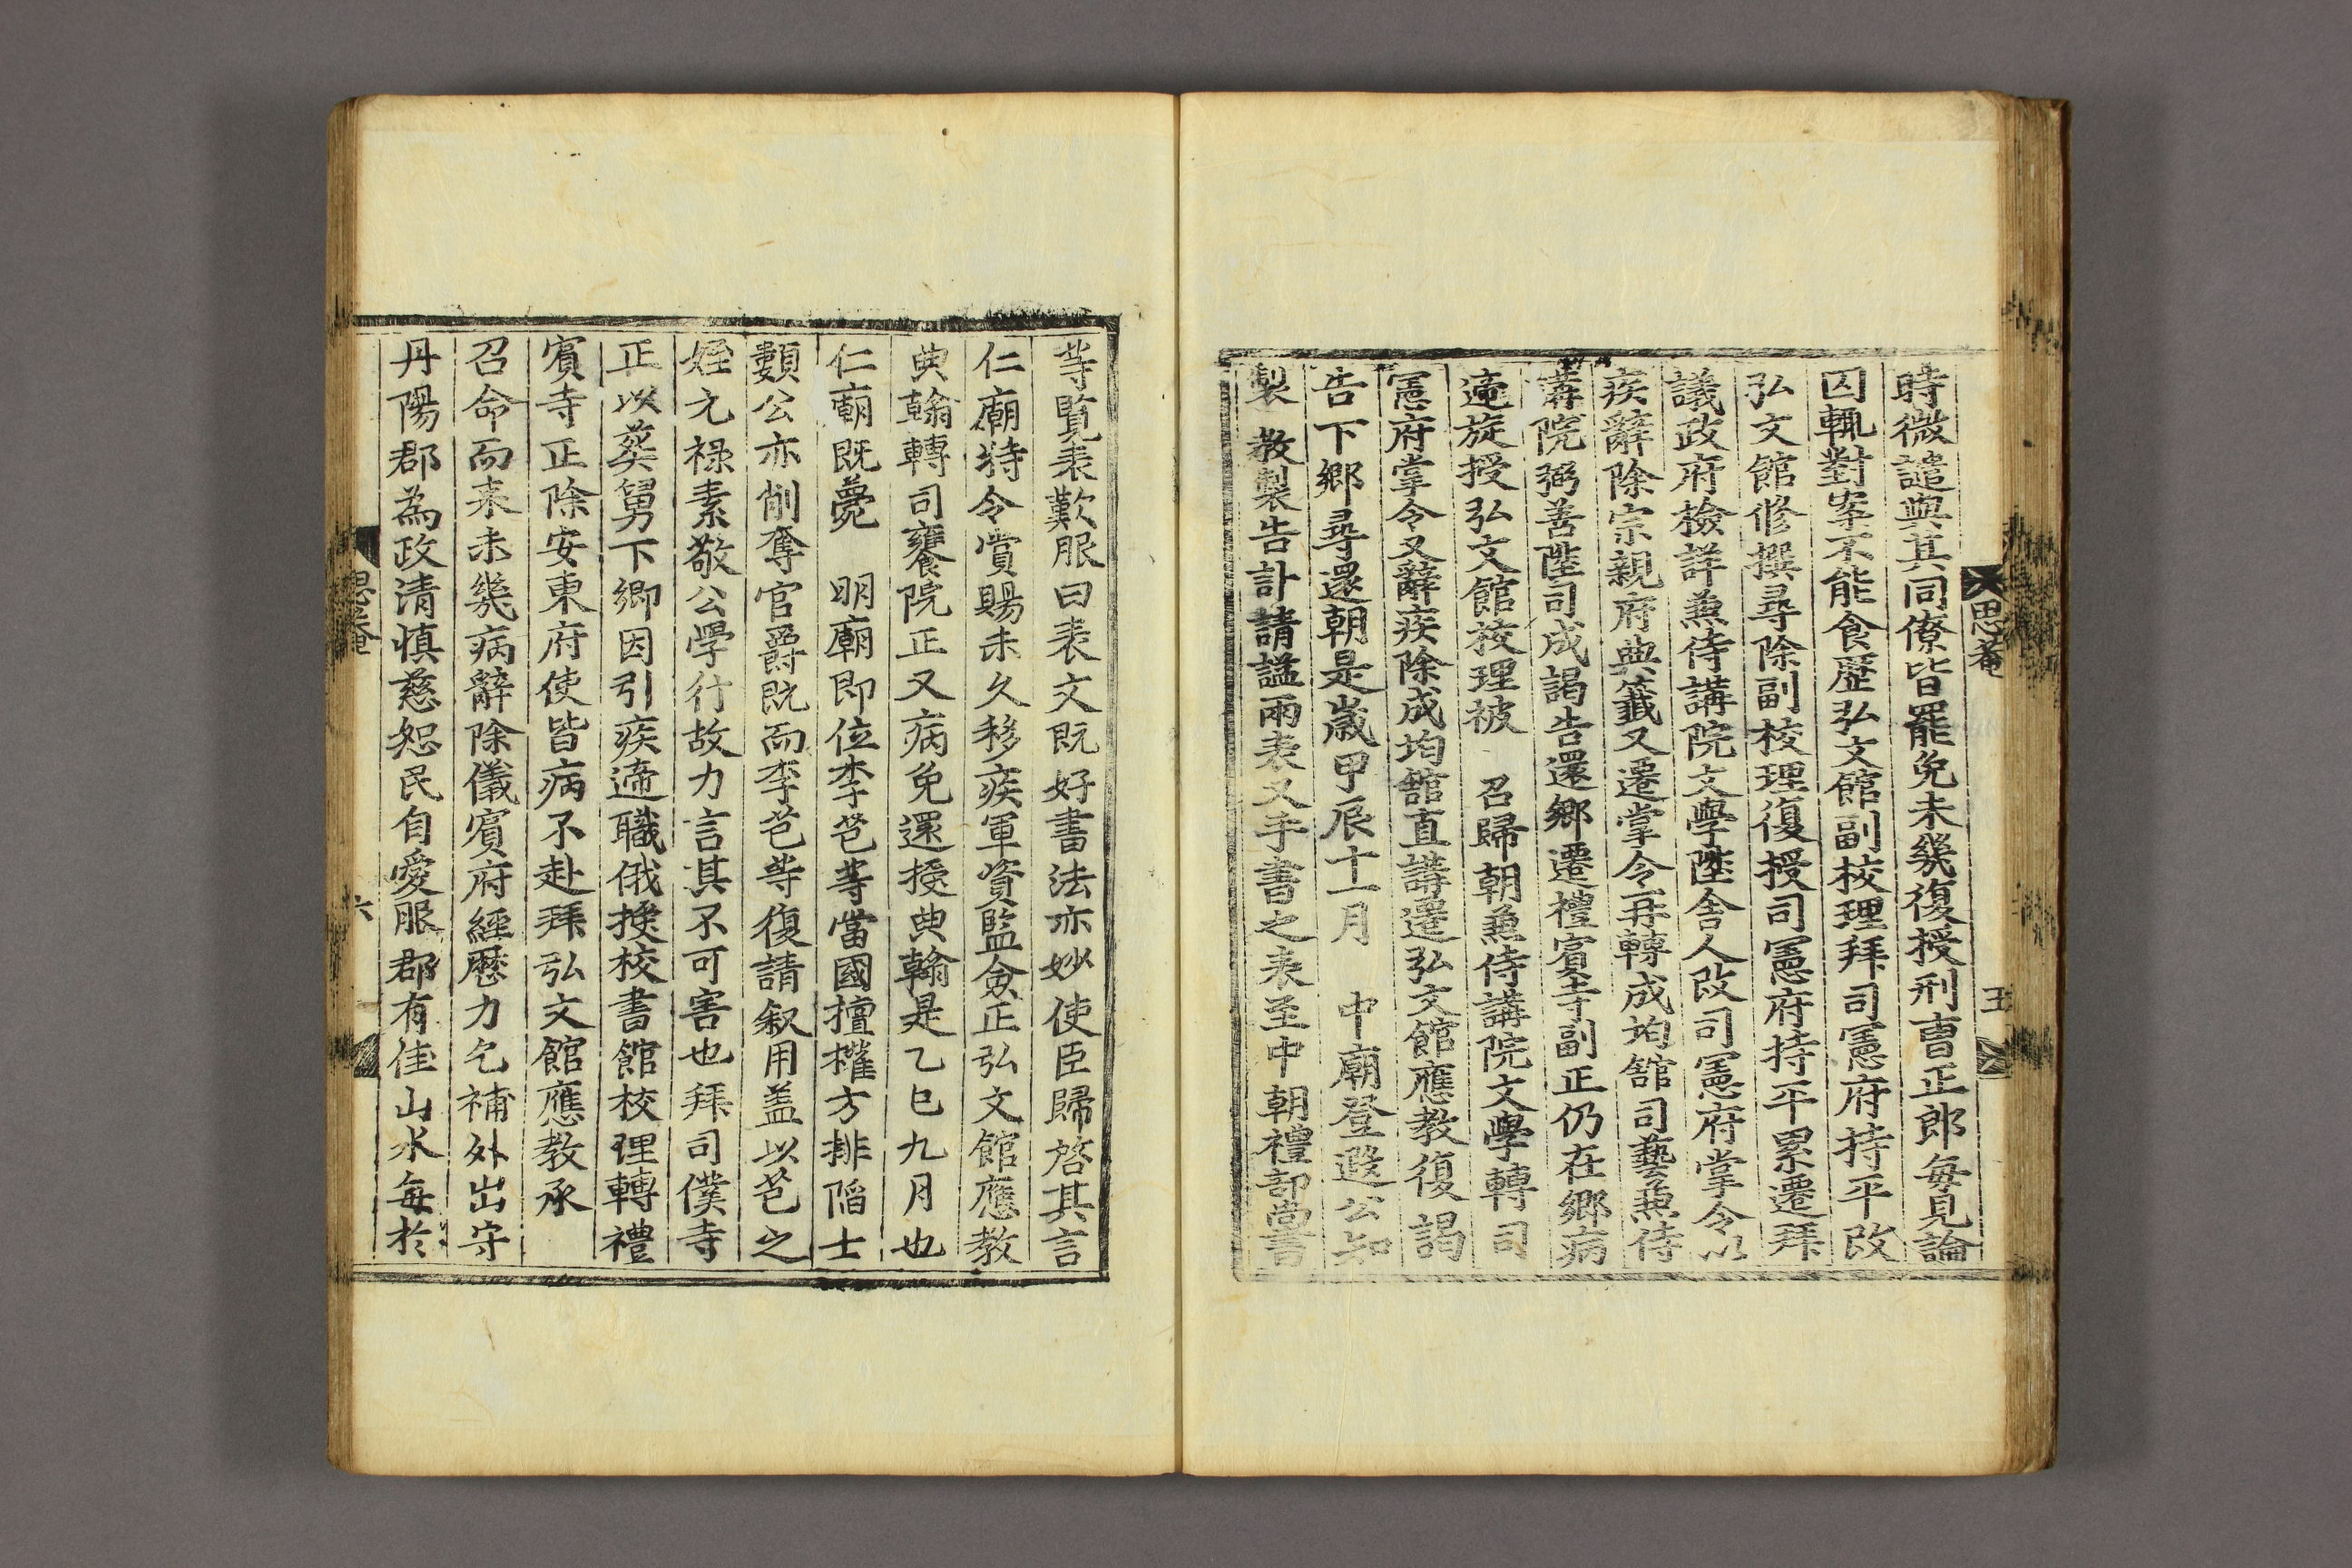 思菴
五
時微譴與其同僚皆罷免未幾復授刑曺正郎每見論
囚輒對案不能食歷弘文館副校理拜司憲府持平改
弘文館修撰尋除副校理復授司憲府持平累遷拜
議政府檢詳兼侍講院文學陞舍人改司憲府掌令以
疾辭除宗親府典籤又遷掌令再轉成均館司藝兼侍
講院弼善陞司成謁告還鄉遷禮賓寺副正仍在鄉病
適旋授弘文館校理被 召歸朝兼侍講院文學轉司
憲府掌令又辭疾除成均館直講遷弘文館應教復謁
告下鄉尋還朝是歲甲辰十一月 中廟登遐公知
製 教製告訃請謚兩表又手書之表至中朝禮部尚書
等覧表歎服曰表文既好書法亦妙使臣歸啓其言
仁廟特令賞賜未久移疾軍資監僉正弘文館應教
典翰轉司饔院正又病免還授典翰是乙巳九月也
仁廟既薨 明廟即位李芑等當國擅權方排陷士
類公亦削奪官爵既而李芑等復請叙用盖以芑之
姪元禄素敬公學行故力言其不可害也拜司僕寺
正以葬舅下鄉因引疾適職俄換校書館校理轉禮
賓寺正除安東府使皆病不赴拜弘文館應教承
召命而来未幾病辭除儀賓府經歷力乞補外出守
丹陽郡為政清慎慈恕民自愛服郡有佳山水每於
思菴
六